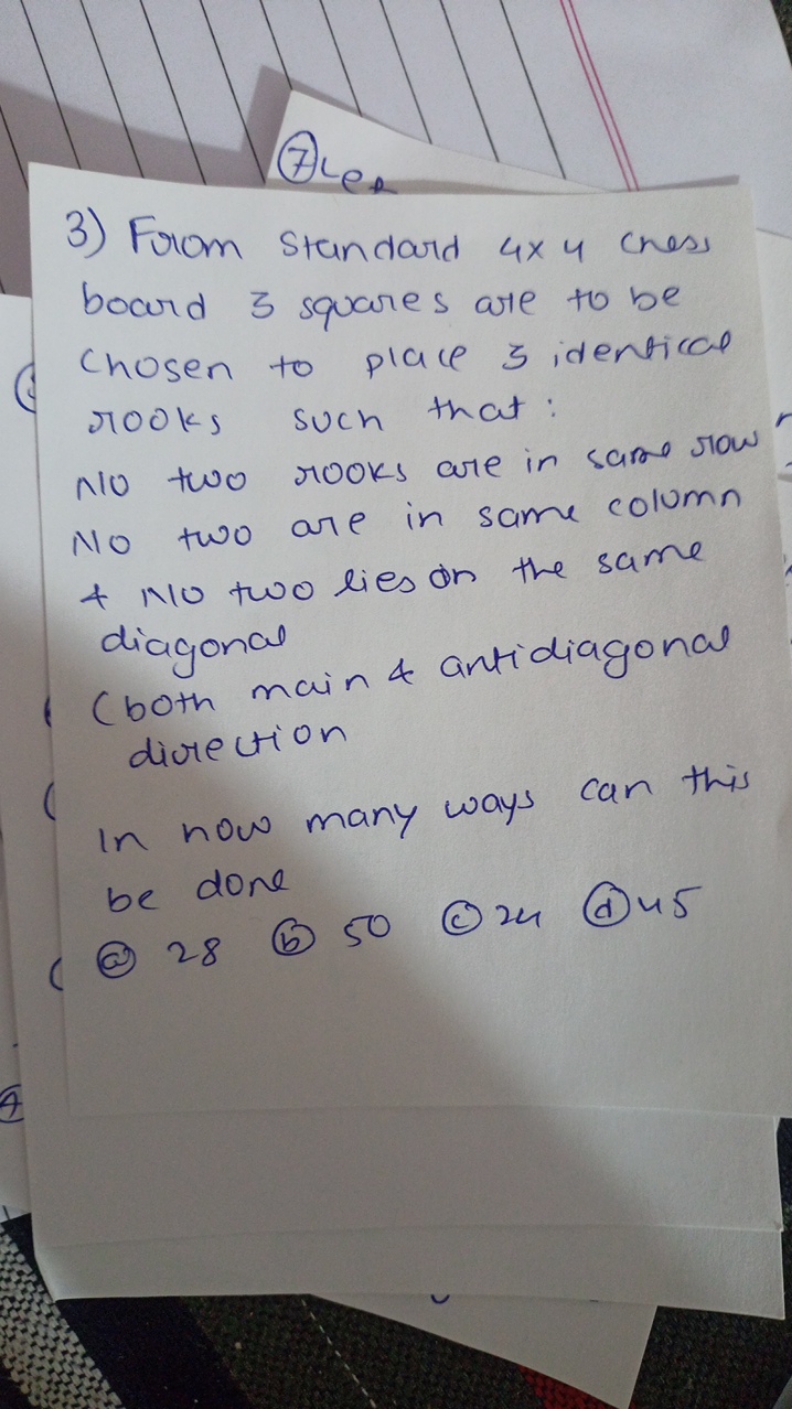 ⑦ Let
3) From standard 4x4 chess
board 3 squares are to be
chosen to place 3 identical
rooks such that :
No two rooks are in same row
No two are in same column
& No two lies on the same
diagonal
(both main & antidiagonal
direction
In how many ways can this
be done
ⓐ 28 ⓑ 50 ⓒ 24 ⓓ 45